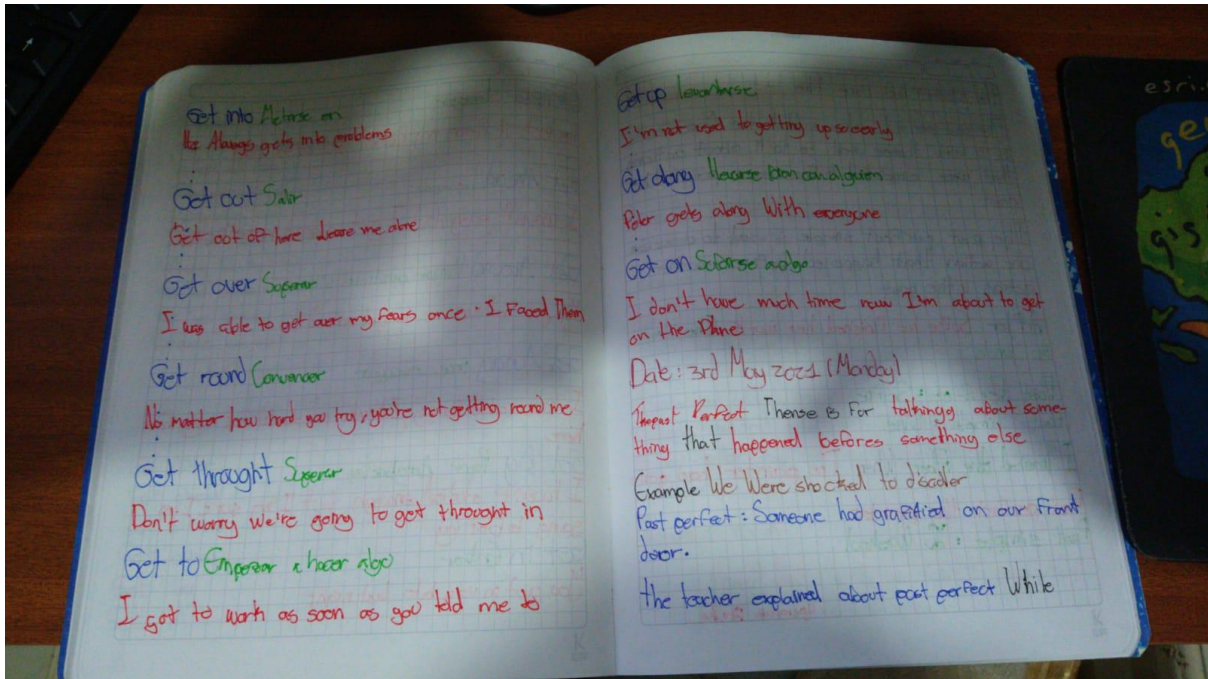 Get into Meterse en
He Always gets into problems
Get out Salir
Get out of here Leave me alone
Get over Superar
I was able to get over my fears once I Faced Them
Get round Convencer
No matter how hard you try, you're not getting round me
Get throught Superar
Don't worry we're going to get throught in
Get to Empezar a hacer algo
I got to work as soon as you told me to
Get up levantarse
I'm not used to getting up so early
Get along llevarse bien con alguien
Peter gets along With everyone
Get on Subirse a algo
I don't have much time now I'm about to get
on the Plane
Date: 3rd May 2021 (Monday)
The past Perfect The use is For talkingg about some-
thing that happened befores something else
Example We Were shocked to discover
Past perfect: Someone had graffitied on our front
door.
the teacher explained about past perfect While
esri.
ge
gis